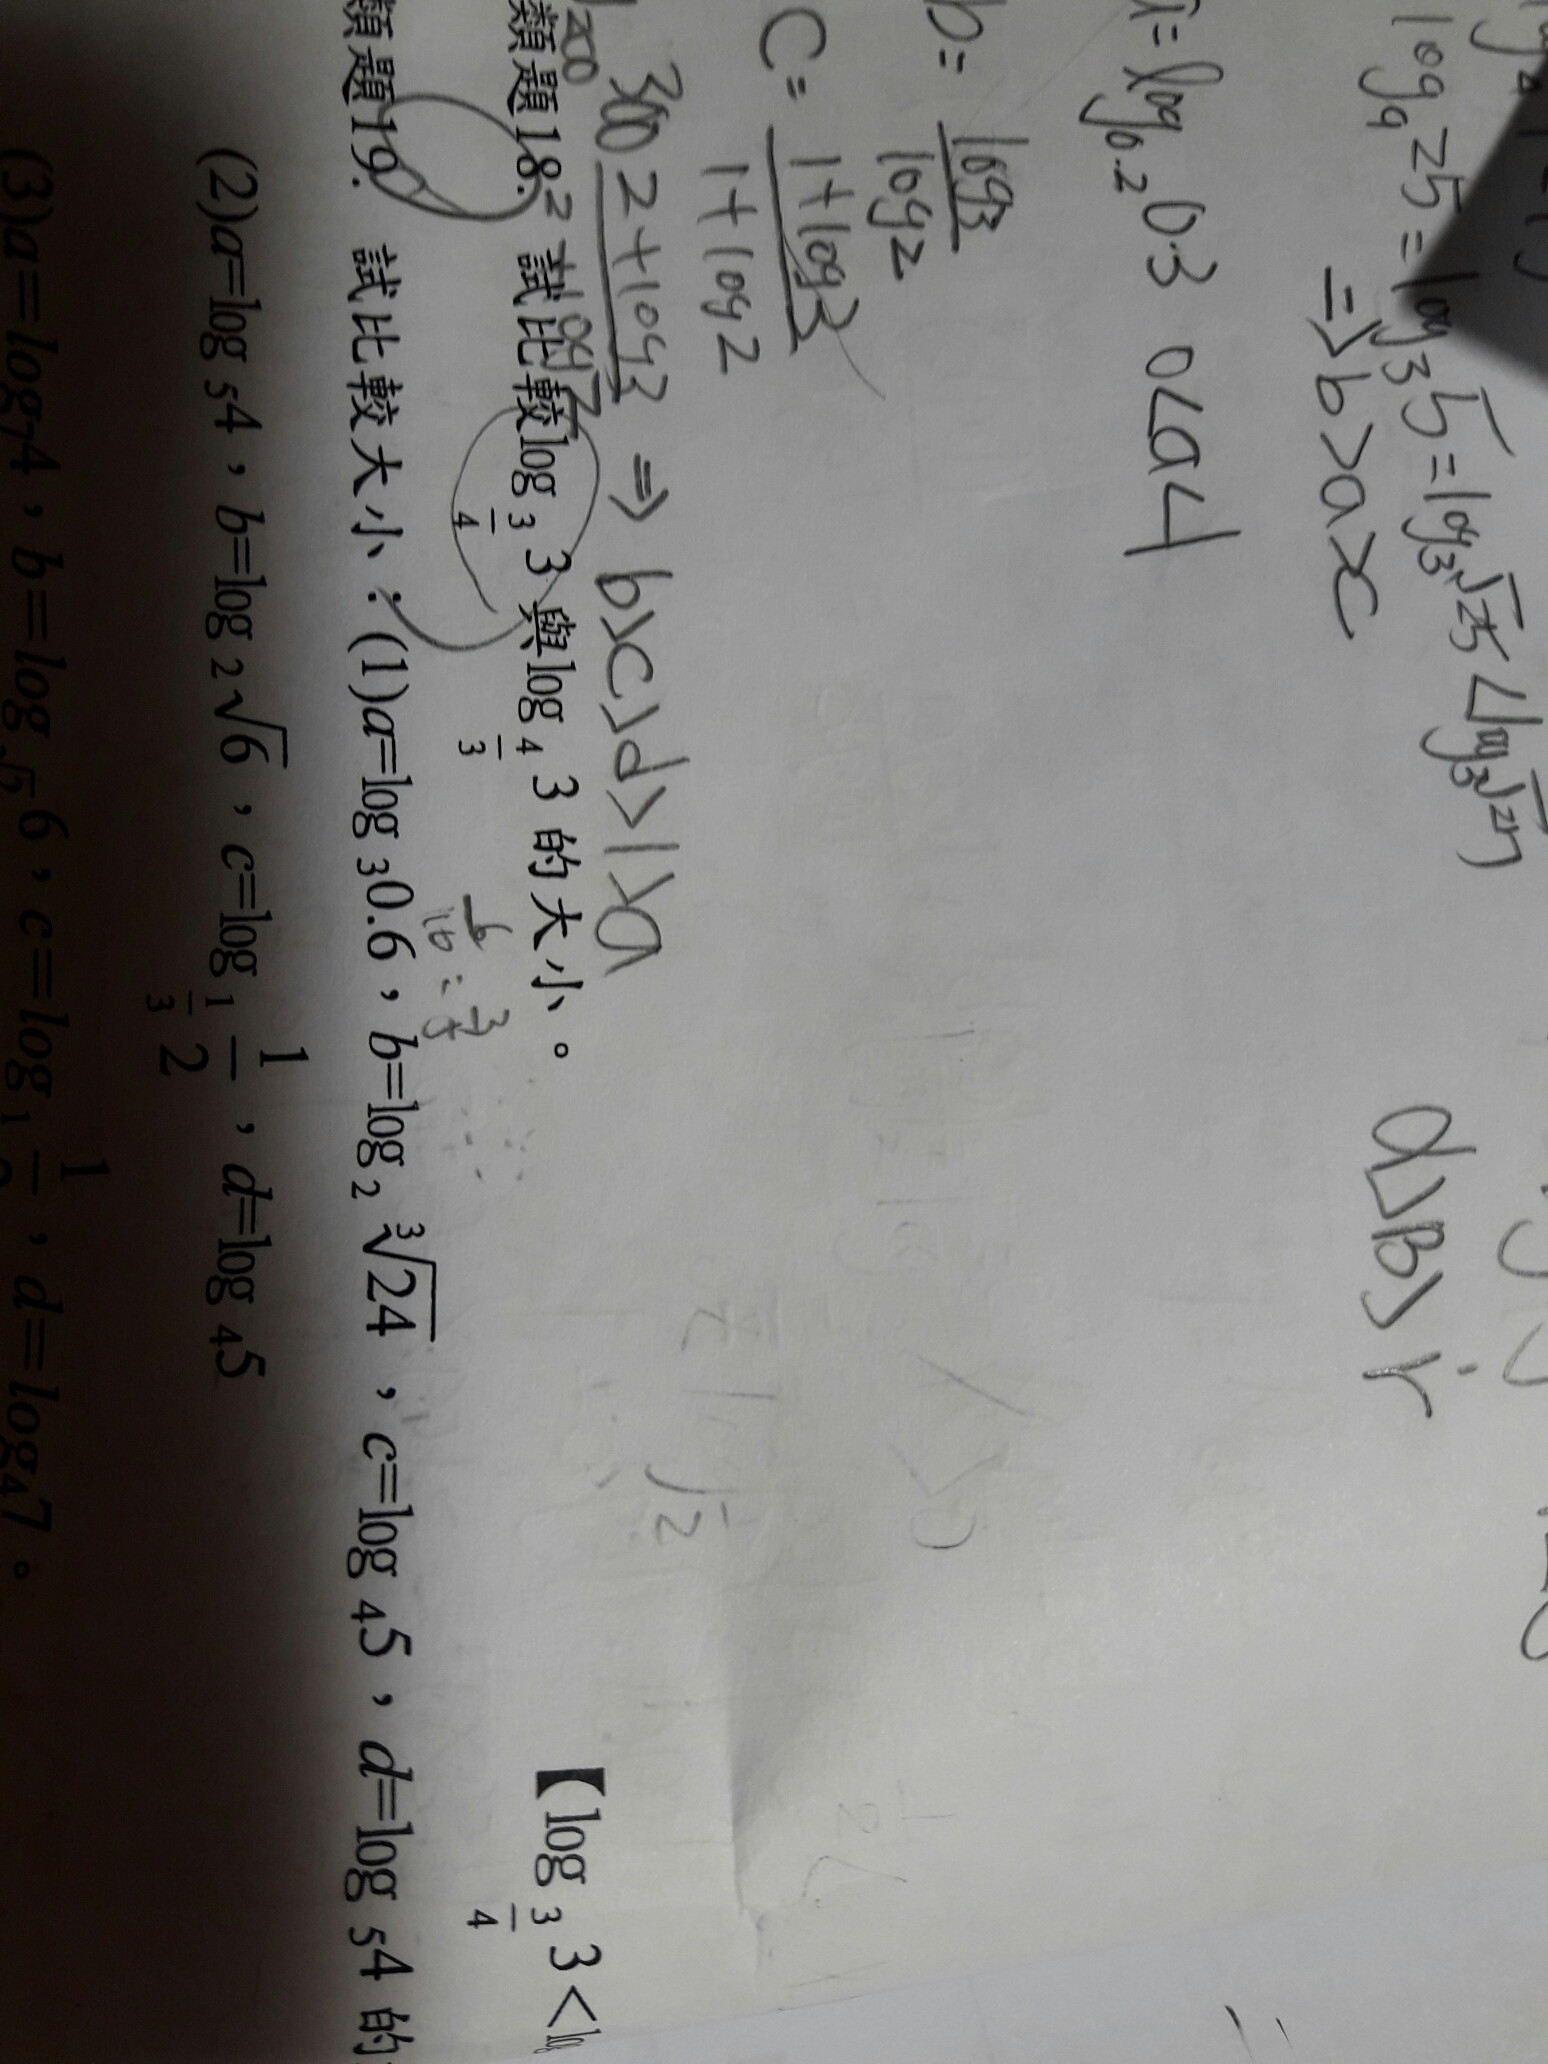 log₉25=log₃5=log₃√25<log₃√27
⇒b>a>c
d>B>r
log₀.₂0.3 0<a<1
b= log3/log2
C= 1+log3/1+log2
2+log3/2+log2 ⇒ b>c>d>1>a
類題18. 試比較log_{3/4} 3 與log_{4/3} 3 的大小。
【log_{3/4} 3<
6/10 = 3/5
類題19. 試比較大小：(1)a=log₃0.6，b=log₂∛24，c=log₄5，d=log₅4 的
(2)a=log₅4，b=log₂√6，c=log_{1/3} 1/2，d=log₄5
(3)a=log₇4，b=log_{√2}6，c=log，d=log₄7。